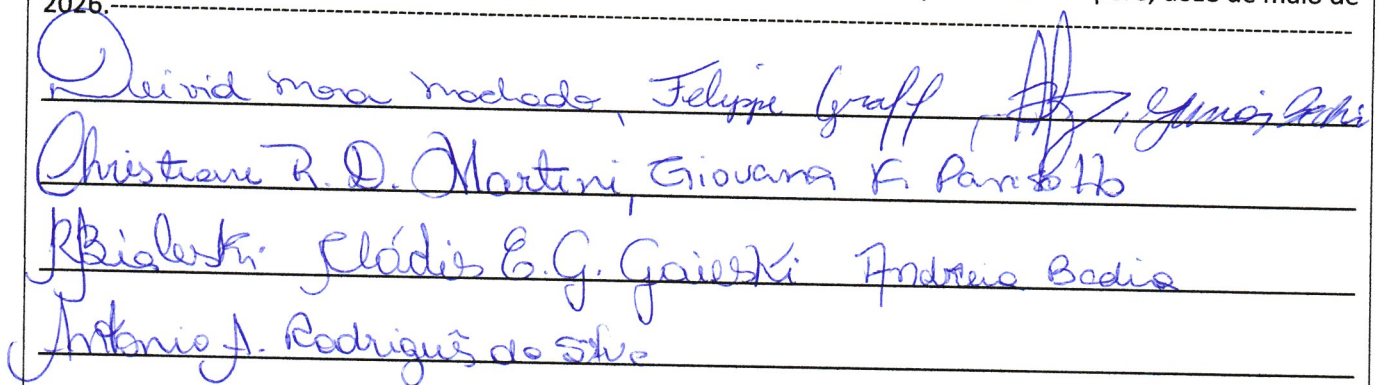 de maio de
2026.-----------------------------------------------
Deivid Mora Machado, Felippe Graff,
Christiane R. D. Martini, Giovana F. Parisotto
RBialeski Cládis E. G. Gaieski Andreia Badia
Antônio A. Rodrigues da Silva